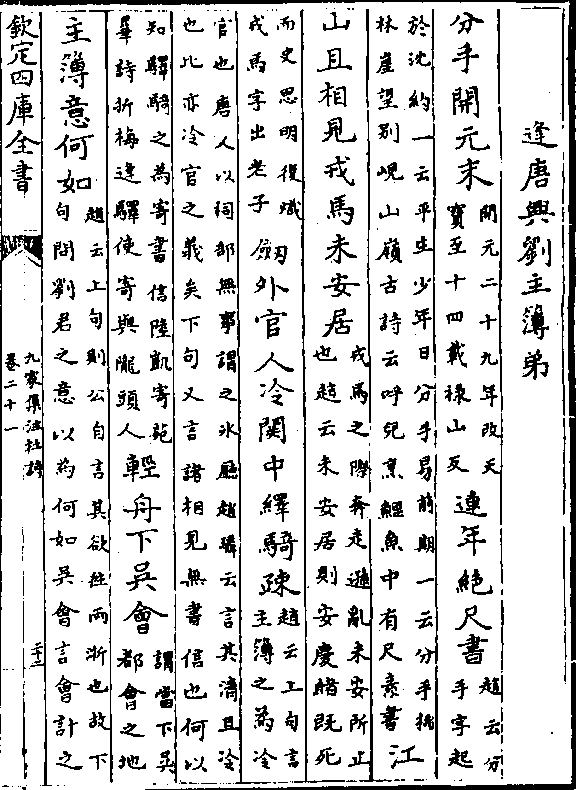 逢唐興劉主簿弟
分手開元末開元二十九年改天寶至十四載祿山反連年絶尺書趙云分手字起
於沈約一云平生少年日分手易前期一云分手桃林崖望别峴山嶺古詩云呼兒烹鯉魚中有尺素書江
山且相見戎馬未安居戎馬之際奔走避亂未安所止也趙云未安居則安慶緒既死
而史思明復熾戎馬字出老子劒外官人冷關中繹騎疎趙云上句言主簿之為冷
官也唐人以祠部無事謂之冰廳趙璘云言其清且冷也比亦冷官之義矣下句又言諸相見無書信也何以
知驛騎之為寄書信陸凱寄范曄詩折梅逢驛使寄與隴頭人輕舟下吳會謂當下吳都會之地
主簿意何如趙云上句則公自言其欲往兩浙也故下句問劉君之意以為何如吳會言會計之
欽定四庫全書
九家集注杜詩
卷二十一